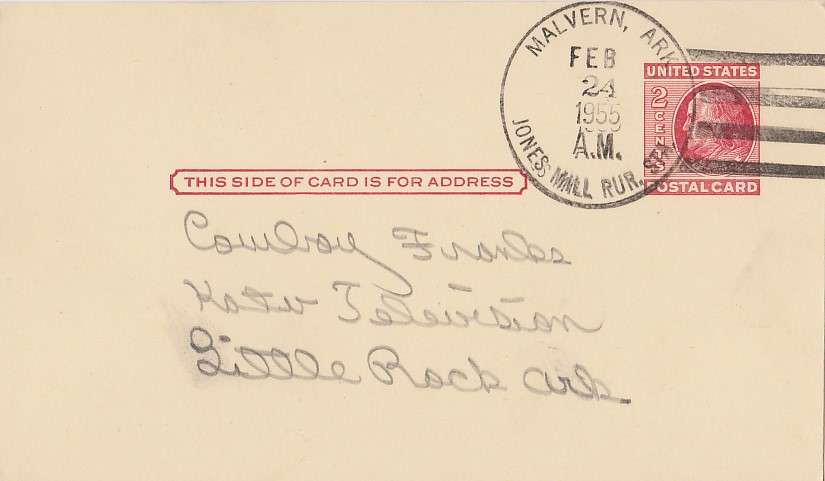 MALVERN, ARK.
FEB
24
1955
A.M.
JONES MILL RUR. STA.
UNITED STATES
2 CENTS
POSTAL CARD
THIS SIDE OF CARD IS FOR ADDRESS
Cowboy Franks
Katv Television
Little Rock Ark